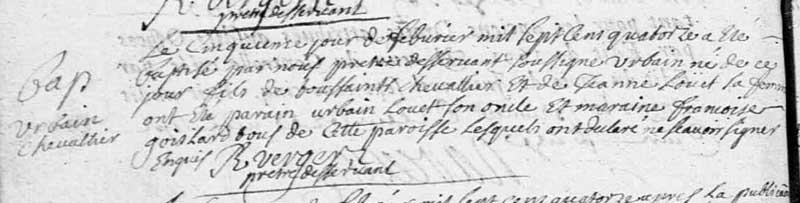 prêtre desservant
Le cinquieme jour de feburier mil sept cens quatorze a ete
Bap baptisé par nous prêtre desservant soussigné urbain né de ce
jour fils de toussaints Chevallier et de Jeanne Louet sa femme
urbain ont ete parain urbain Louet son oncle et maraine francoise
Chevallier goislard tous de cette paroisse lesquels ont declaré ne scavoir signer
Enquis R Verger
prêtre desservant
mil sept cens quatorze apres la publica